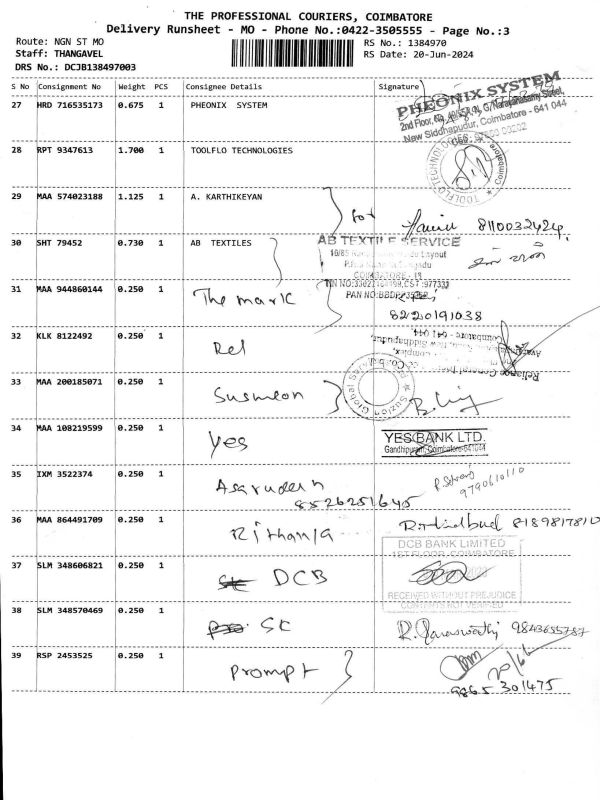 THE PROFESSIONAL COURIERS, COIMBATORE
Delivery Runsheet - MO - Phone No.:0422-3505555 - Page No.:3
Route: NGN ST MO
RS No.: 1384970
Staff: THANGAVEL
RS Date: 20-Jun-2024
DRS No.: DCJB138497003
S No Consignment No Weight PCS Consignee Details Signature
27 HRD 716535173 0.675 1 PHEONIX SYSTEM
PHEONIX SYSTEM
New Siddhapudur, Coimbatore - 641 044
28 RPT 9347613 1.700 1 TOOLFLO TECHNOLOGIES
TOOLFLO TECHNOLOGIES Coimbatore
29 MAA 574023188 1.125 1 A. KARTHIKEYAN
for 8110032424
30 SHT 79452 0.730 1 AB TEXTILES
AB TEXTILE SERVICE
COIMBATORE - 
PAN NO:
31 MAA 944860144 0.250 1 The mark
8220191038
32 KLK 8122492 0.250 1 Rel
Reliance General
33 MAA 200185071 0.250 1 Susmeon
Suzion Global Services
34 MAA 108219599 0.250 1 Yes
YES BANK LTD.
Gandhipuram, Coimbatore-641044
35 IXM 3522374 0.250 1 Asarudeen
8526251645
9790610110
36 MAA 864491709 0.250 1 Rithanya
8189817810
37 SLM 348606821 0.250 1 DCB
DCB BANK LIMITED
1ST FLOOR, COIMBATORE
RECEIVED WITHOUT PREJUDICE
CONTENTS NOT VERIFIED
38 SLM 348570469 0.250 1 SK
R. Saraswathi 9843655787
39 RSP 2453525 0.250 1 Prompt
20/6
9865 301475